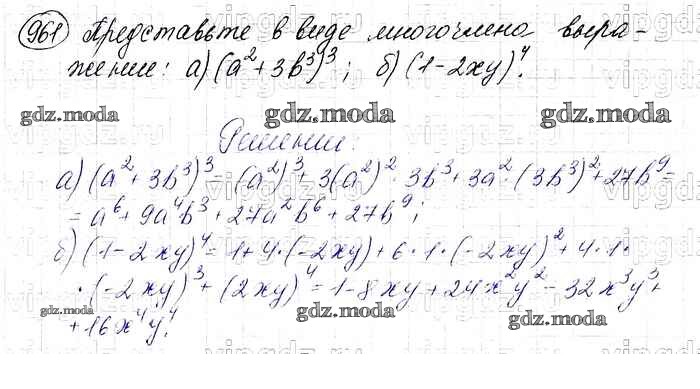 961 Представьте в виде многочлена выра-
жение: а) (a² + 3b³)³; б) (1 - 2xy)⁴.
gdz.moda gdz.moda gdz.moda
Решение:
а) (a² + 3b³)³ = (a²)³ + 3(a²)² · 3b³ + 3a² · (3b³)² + 27b⁹ =
= a⁶ + 9a⁴b³ + 27a²b⁶ + 27b⁹;
gdz.moda gdz.moda
б) (1 - 2xy)⁴ = 1 + 4 · (-2xy) + 6 · 1 · (-2xy)² + 4 · 1 ·
· (-2xy)³ + (2xy)⁴ = 1 - 8xy + 24x²y² - 32x³y³ +
+ 16x⁴y⁴.
gdz.moda gdz.moda gdz.moda